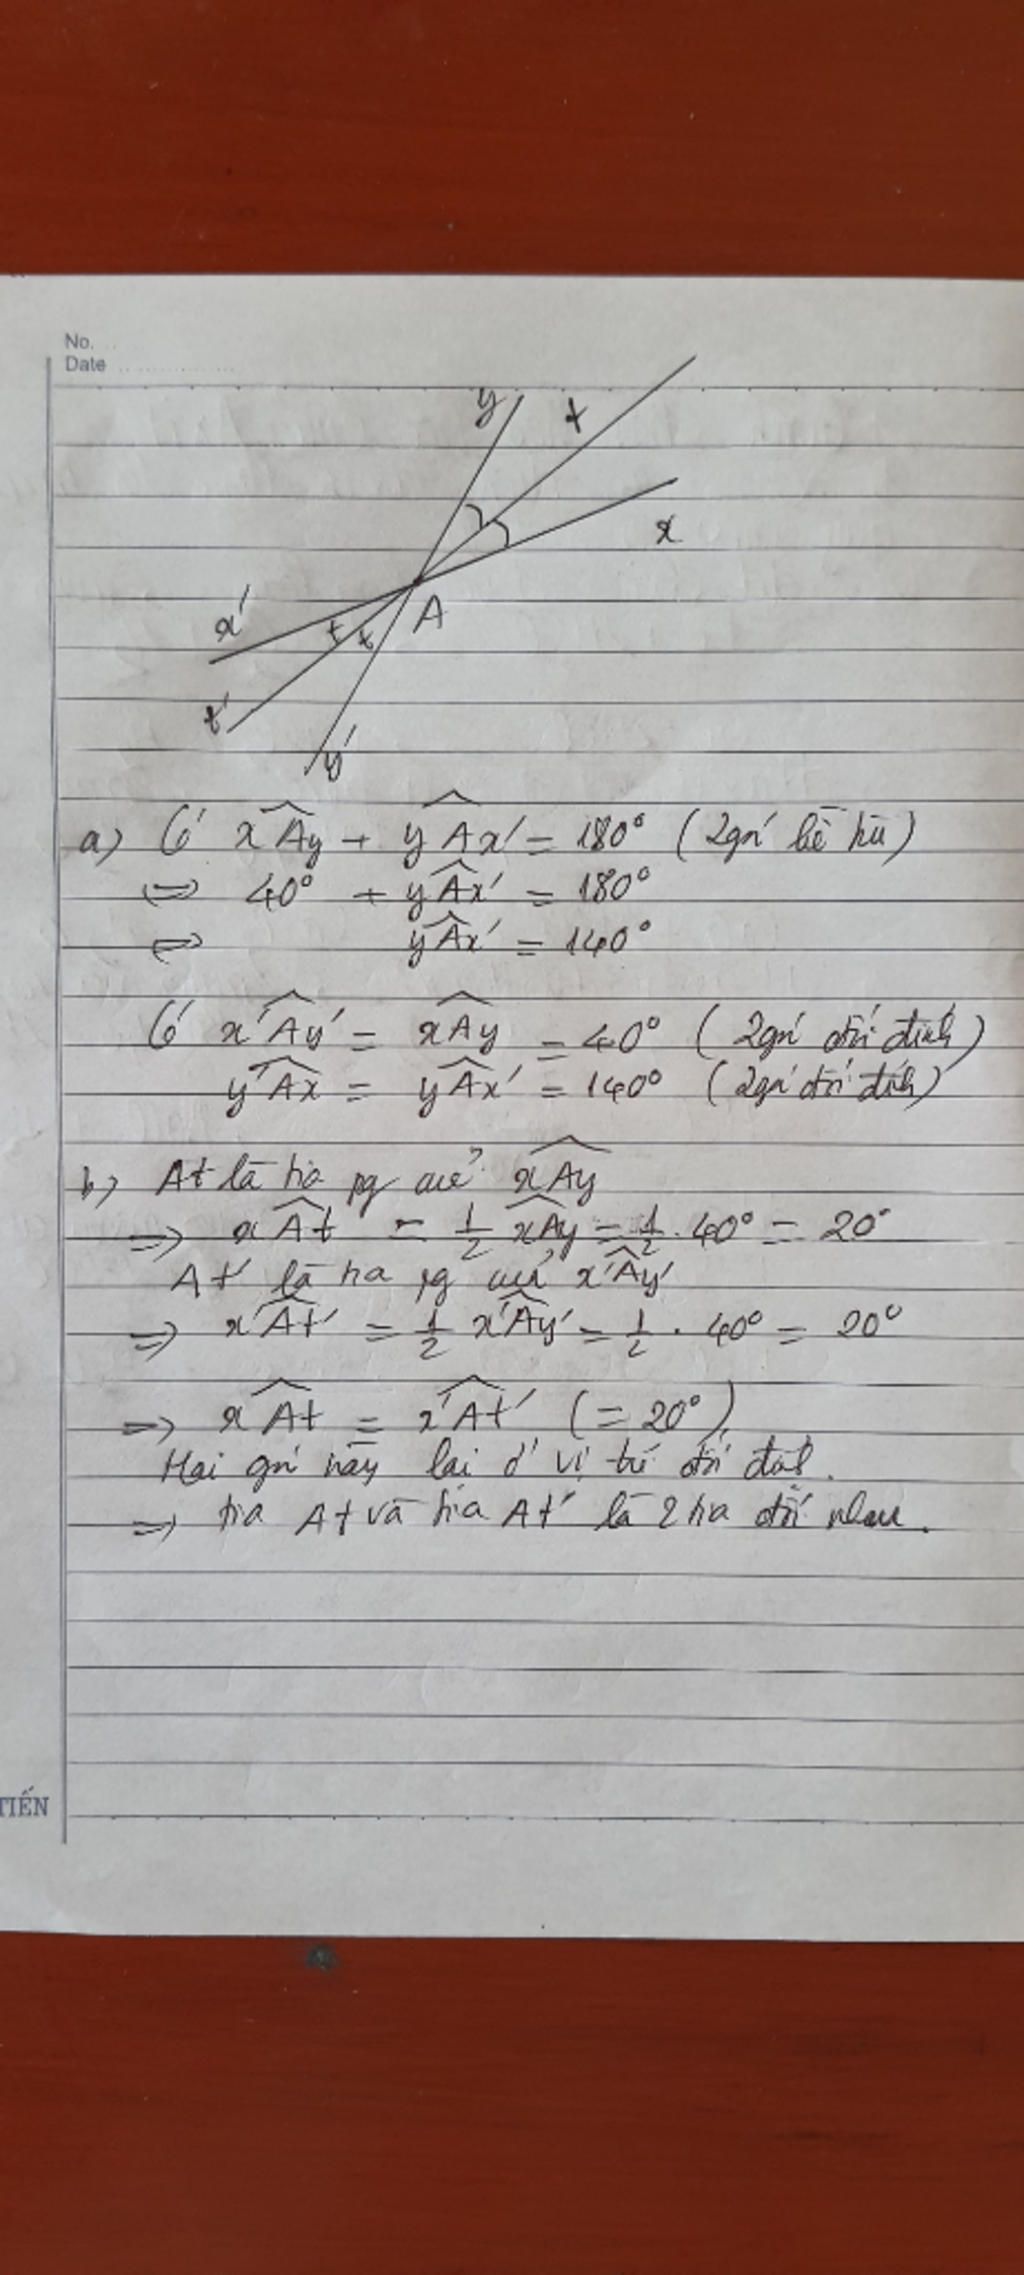 No.
Date
y
t
x
x'
A
t'
y'
a) Có xÂy + yÂx' = 180° (2 góc kề bù)
⇔ 40° + yÂx' = 180°
⇔ yÂx' = 140°
Có x'Ây' = xÂy = 40° (2 góc đối đỉnh)
y'Âx = yÂx' = 140° (2 góc đối đỉnh)
b) At là tia pg của xÂy
⇒ xÂt = 1/2 xÂy = 1/2 . 40° = 20°
At' là tia pg của x'Ây'
⇒ x'Ât' = 1/2 x'Ây' = 1/2 . 40° = 20°
⇒ xÂt = x'Ât' (= 20°)
Hai góc này lại ở vị trí đối đỉnh.
⇒ tia At và tia At' là 2 tia đối nhau.
TIẾN